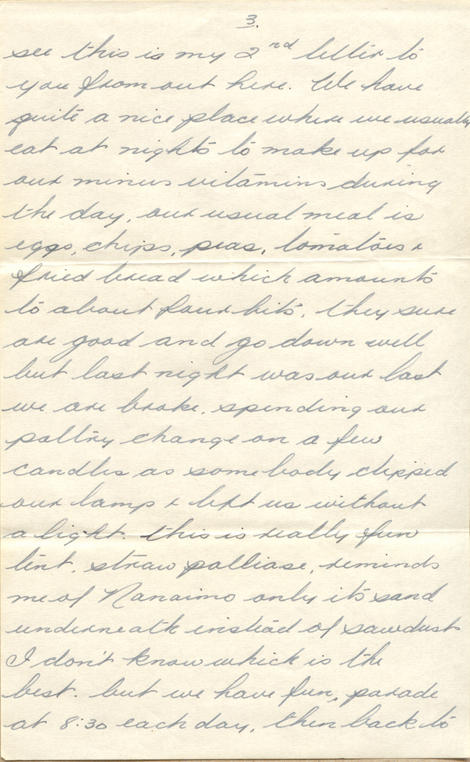 3.
see this is my 2nd letter to
you from out here. We have
quite a nice place where we usually
eat at nights to make up for
our minus vitamins during
the day, our usual meal is
eggs, chips, peas, tomatoes &
fried bread which amounts
to about four bits, they sure
are good and go down well
but last night was our last
we are broke. spending our
paltry change on a few
candles as somebody clipped
our lamp & left us without
a light. this is really fun
tent, straw palliase, reminds
me of Nanaimo only its sand
underneath instead of sawdust
I don't know which is the
best. but we have fun, parade
at 8:30 each day, then back to